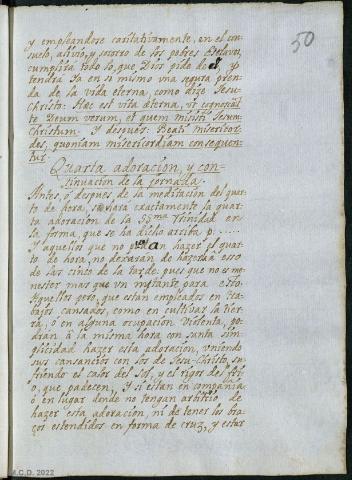 50
y empleandose caritativamente, en el con-
suelo, alivio, y socorro de los pobres Esclavos,
cumplirá todo lo, que Dios pide de el, y
tendrá Ya en si mismo una segura pren-
da de la vida eterna, como dize Jesu-
Christo: Hæc est vita æterna, ut cognoscāt
te Deum verum, et quem misisti Jesum
Christum. Y despues: Beati misericor-
des, quoniam misericordiam consequen-
tur.
Quarta adoracion, y con-
tinuacion de la jornada.
Antes, ó despues de la meditacion del quar-
to de hora, se hara exactamente la quar-
ta adoracion de la SSma Trinidad en
la forma, que se ha dicho arriba p: .....
Y aquellos que no podran hazer el quar-
to de hora, no dexaràn de hazer à esso
de las cinco de la tarde; pues que no es me-
nester mas que un instante para esto.
Aquellos pero, que están empleados en tra-
bajos cansados, como en cultivar la tier-
ra, ó en alguna ocupacion violenta, po-
drán à la misma hora con santa sim-
plicidad hazer esta adoracion, uniendo
sus cansancios con los de Jesu-Christo, su-
friendo el calor del sol, y el rigor del fri-
o, que padecen. Y si estan en compañia
ó en lugar donde no tengan arbitrio de
hazer esta adoracion, ni de tener los bra-
ços estendidos en forma de cruz, y estar
A.C.D. 2022